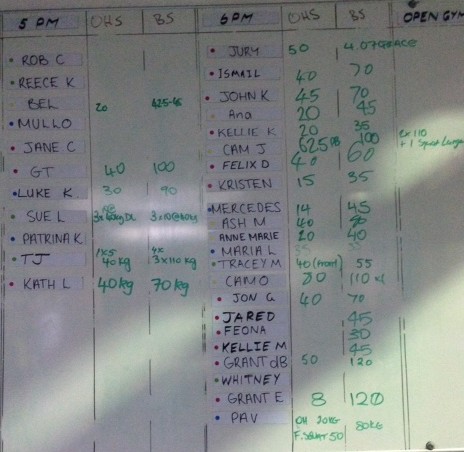 5 PM OHS BS 6 PM OHS BS OPEN GYM
ROB C JURY 50
REECE K ISMAIL 40 70
BEL 20 JOHN K 45 70
MULLO Ana 20 45
JANE C KELLIE K 20 35
CAM J 62.5 100 2x110
GT 40 100 FELIX D 40 60
LUKE K 30 90 KRISTEN 15 35
SUE L MERCEDES 14 45
ASH M 40
PATRINA K ANNE MARIE 20 40
TJ 1x5 40kg 4x 3x110kg MARIA L
TRACEY M 40 (Front) 55
KATH L 40kg 70kg CAM O 110
JON G 40 70
JARED 45
FEONA 30
KELLIE M 45
GRANT dB 50 120
WHITNEY
GRANT E 8 120
PAV OH 20KG 80KG
F.SQUAT 50